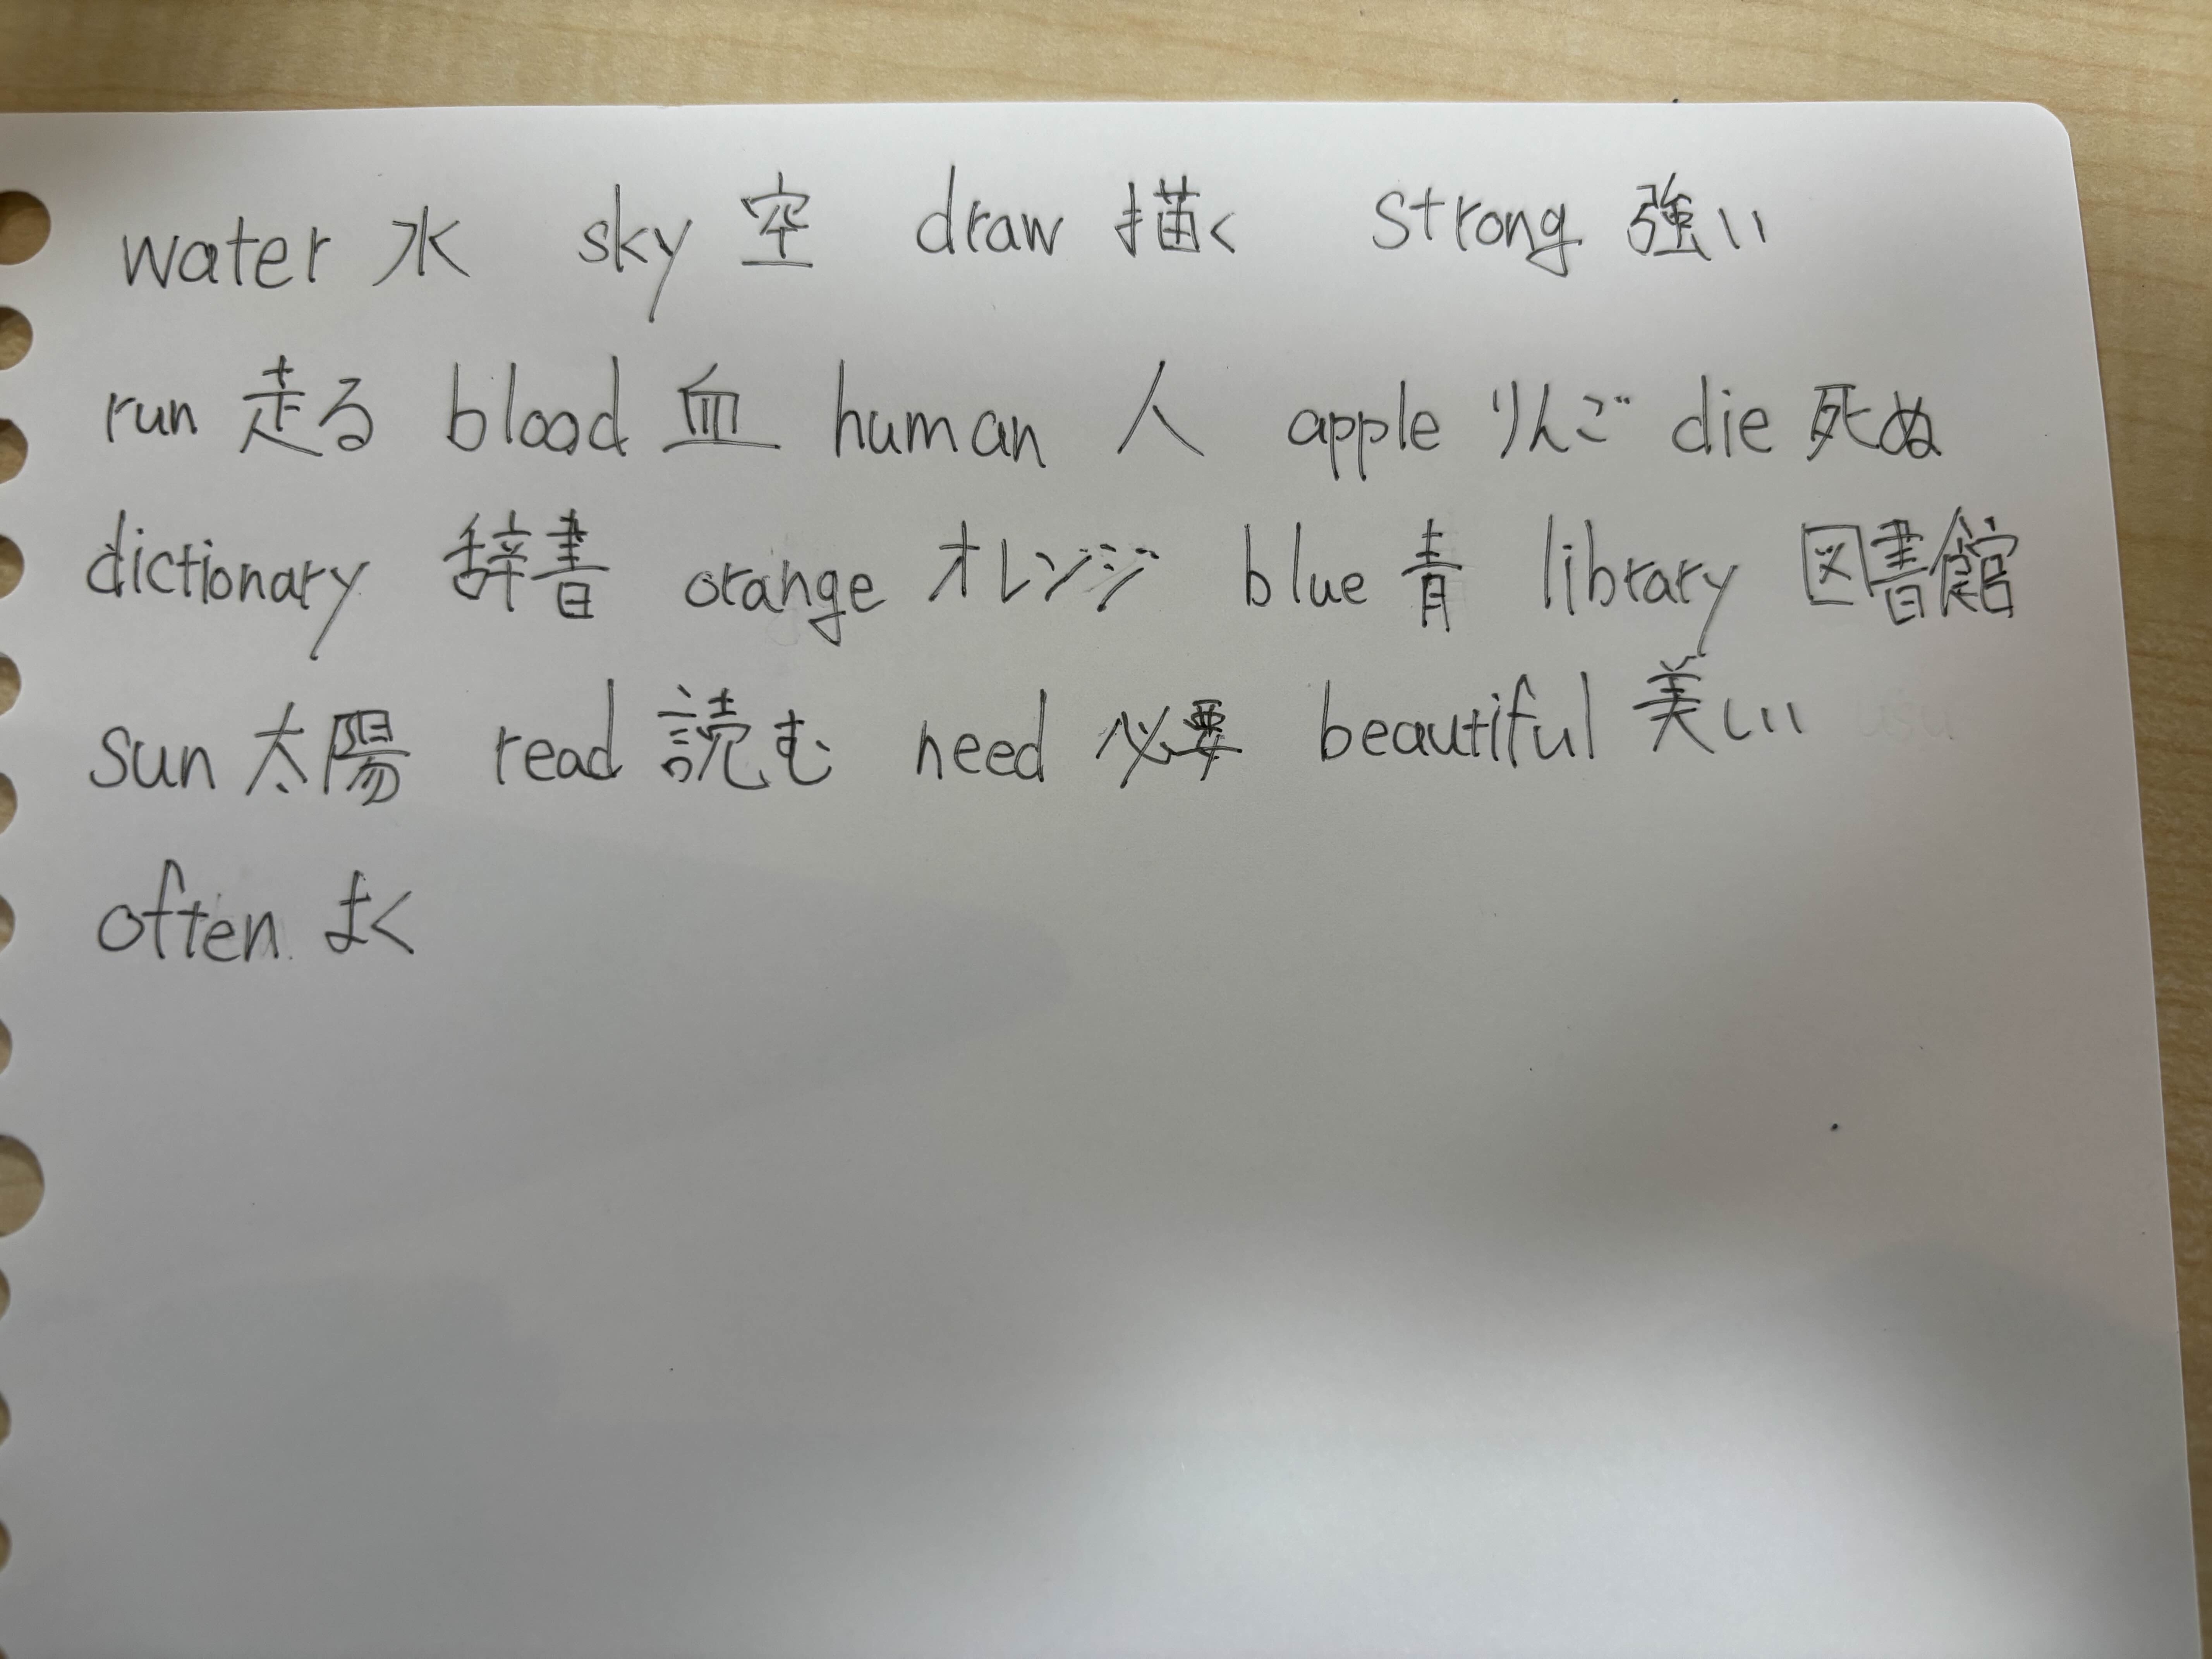 water 水 sky 空 draw 描く strong 強い
run 走る blood 血 human 人 apple りんご die 死ぬ
dictionary 辞書 orange オレンジ blue 青 library 図書館
sun 太陽 read 読む need 必要 beautiful 美しい
often よく